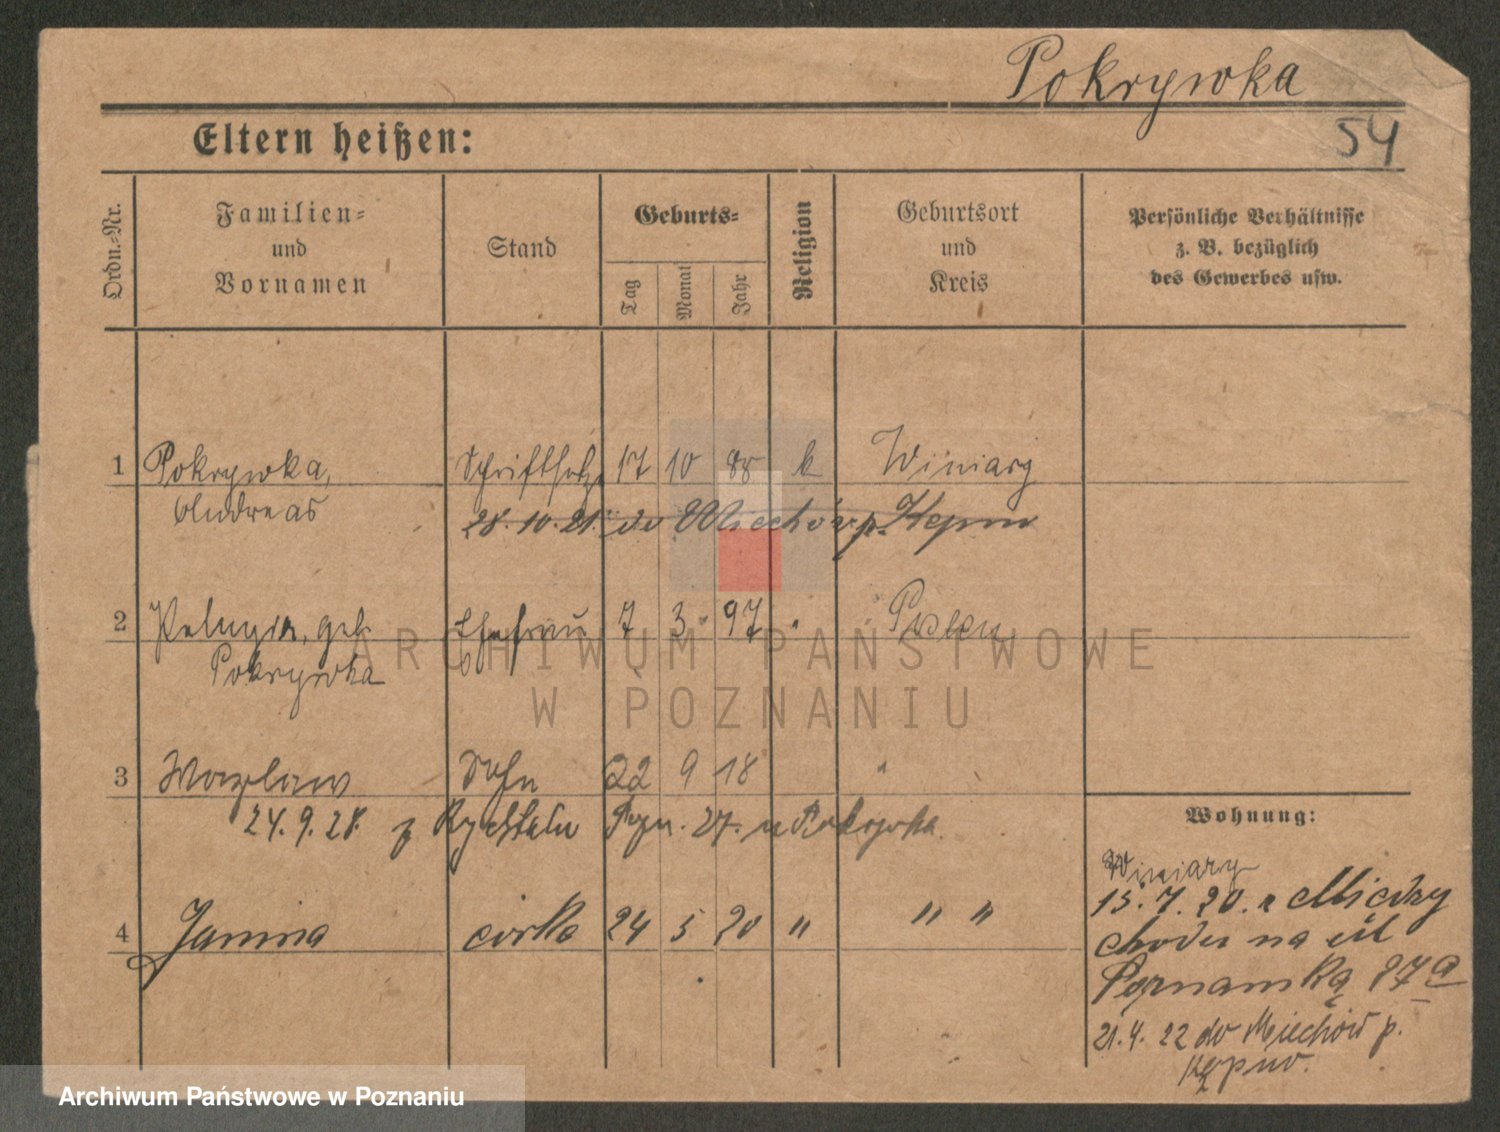 Pokrywka
54
Eltern heißen:
Ordn.-Nr.
Familien-
und
Vornamen
Stand
Geburts-
Tag
Monat
Jahr
Religion
Geburtsort
und
Kreis
Persönliche Verhältnisse
z. B. bezüglich
des Gewerbes usw.
1 Pokrywka, Schriftsetz. 17 10 88 k Winiary
Andreas
28.10.21. do Miechów p. Kępno
2 Pelagia, geb. Ehefrau 7 3 97 " Posen
Pokrywka
3 Wazlaw Sohn 22 9 18 "
24.9.28. z Rychtalu Pozn. 27. u Pokrywka
4 Janina córka 24 5 20 " " "
Wohnung:
Winiary
15.7.20. z Międzychodu na ul
Poznańską 87a
21.4.22 do Miechów p.
Kępno.
ARCHIWUM PAŃSTWOWE
W POZNANIU
Archiwum Państwowe w Poznaniu